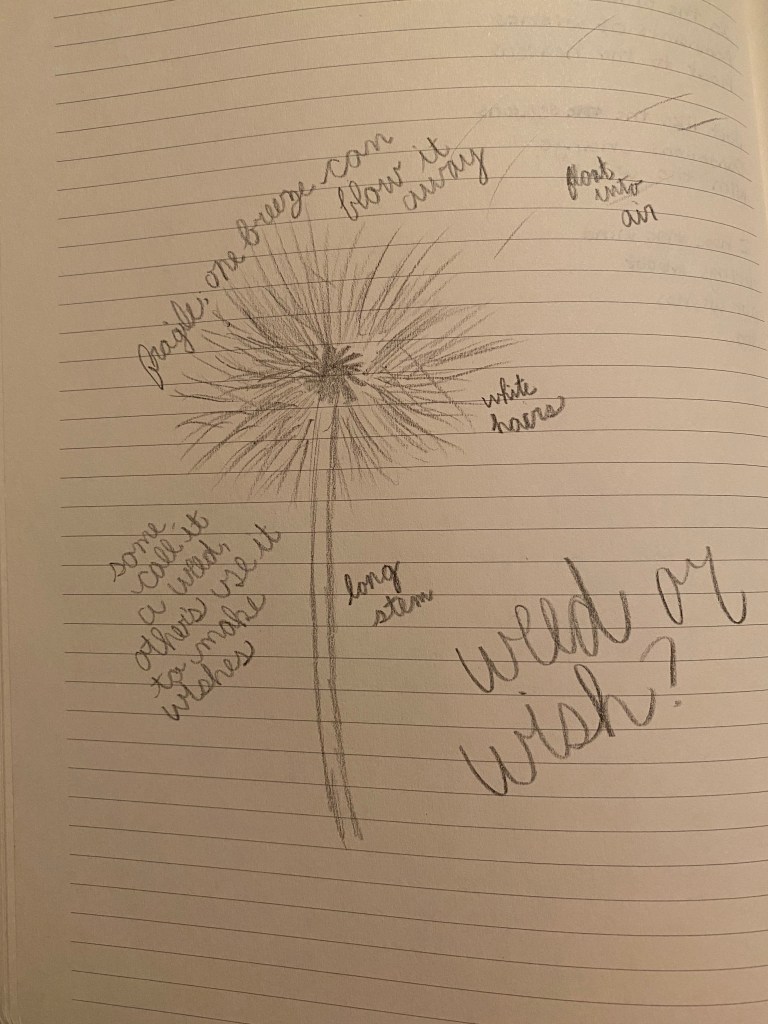 fragile, one breeze can
blow it
away
float
into
air
white
hairs
some
call it
a weed,
others use it
to make
wishes
long
stem
weed or
wish?